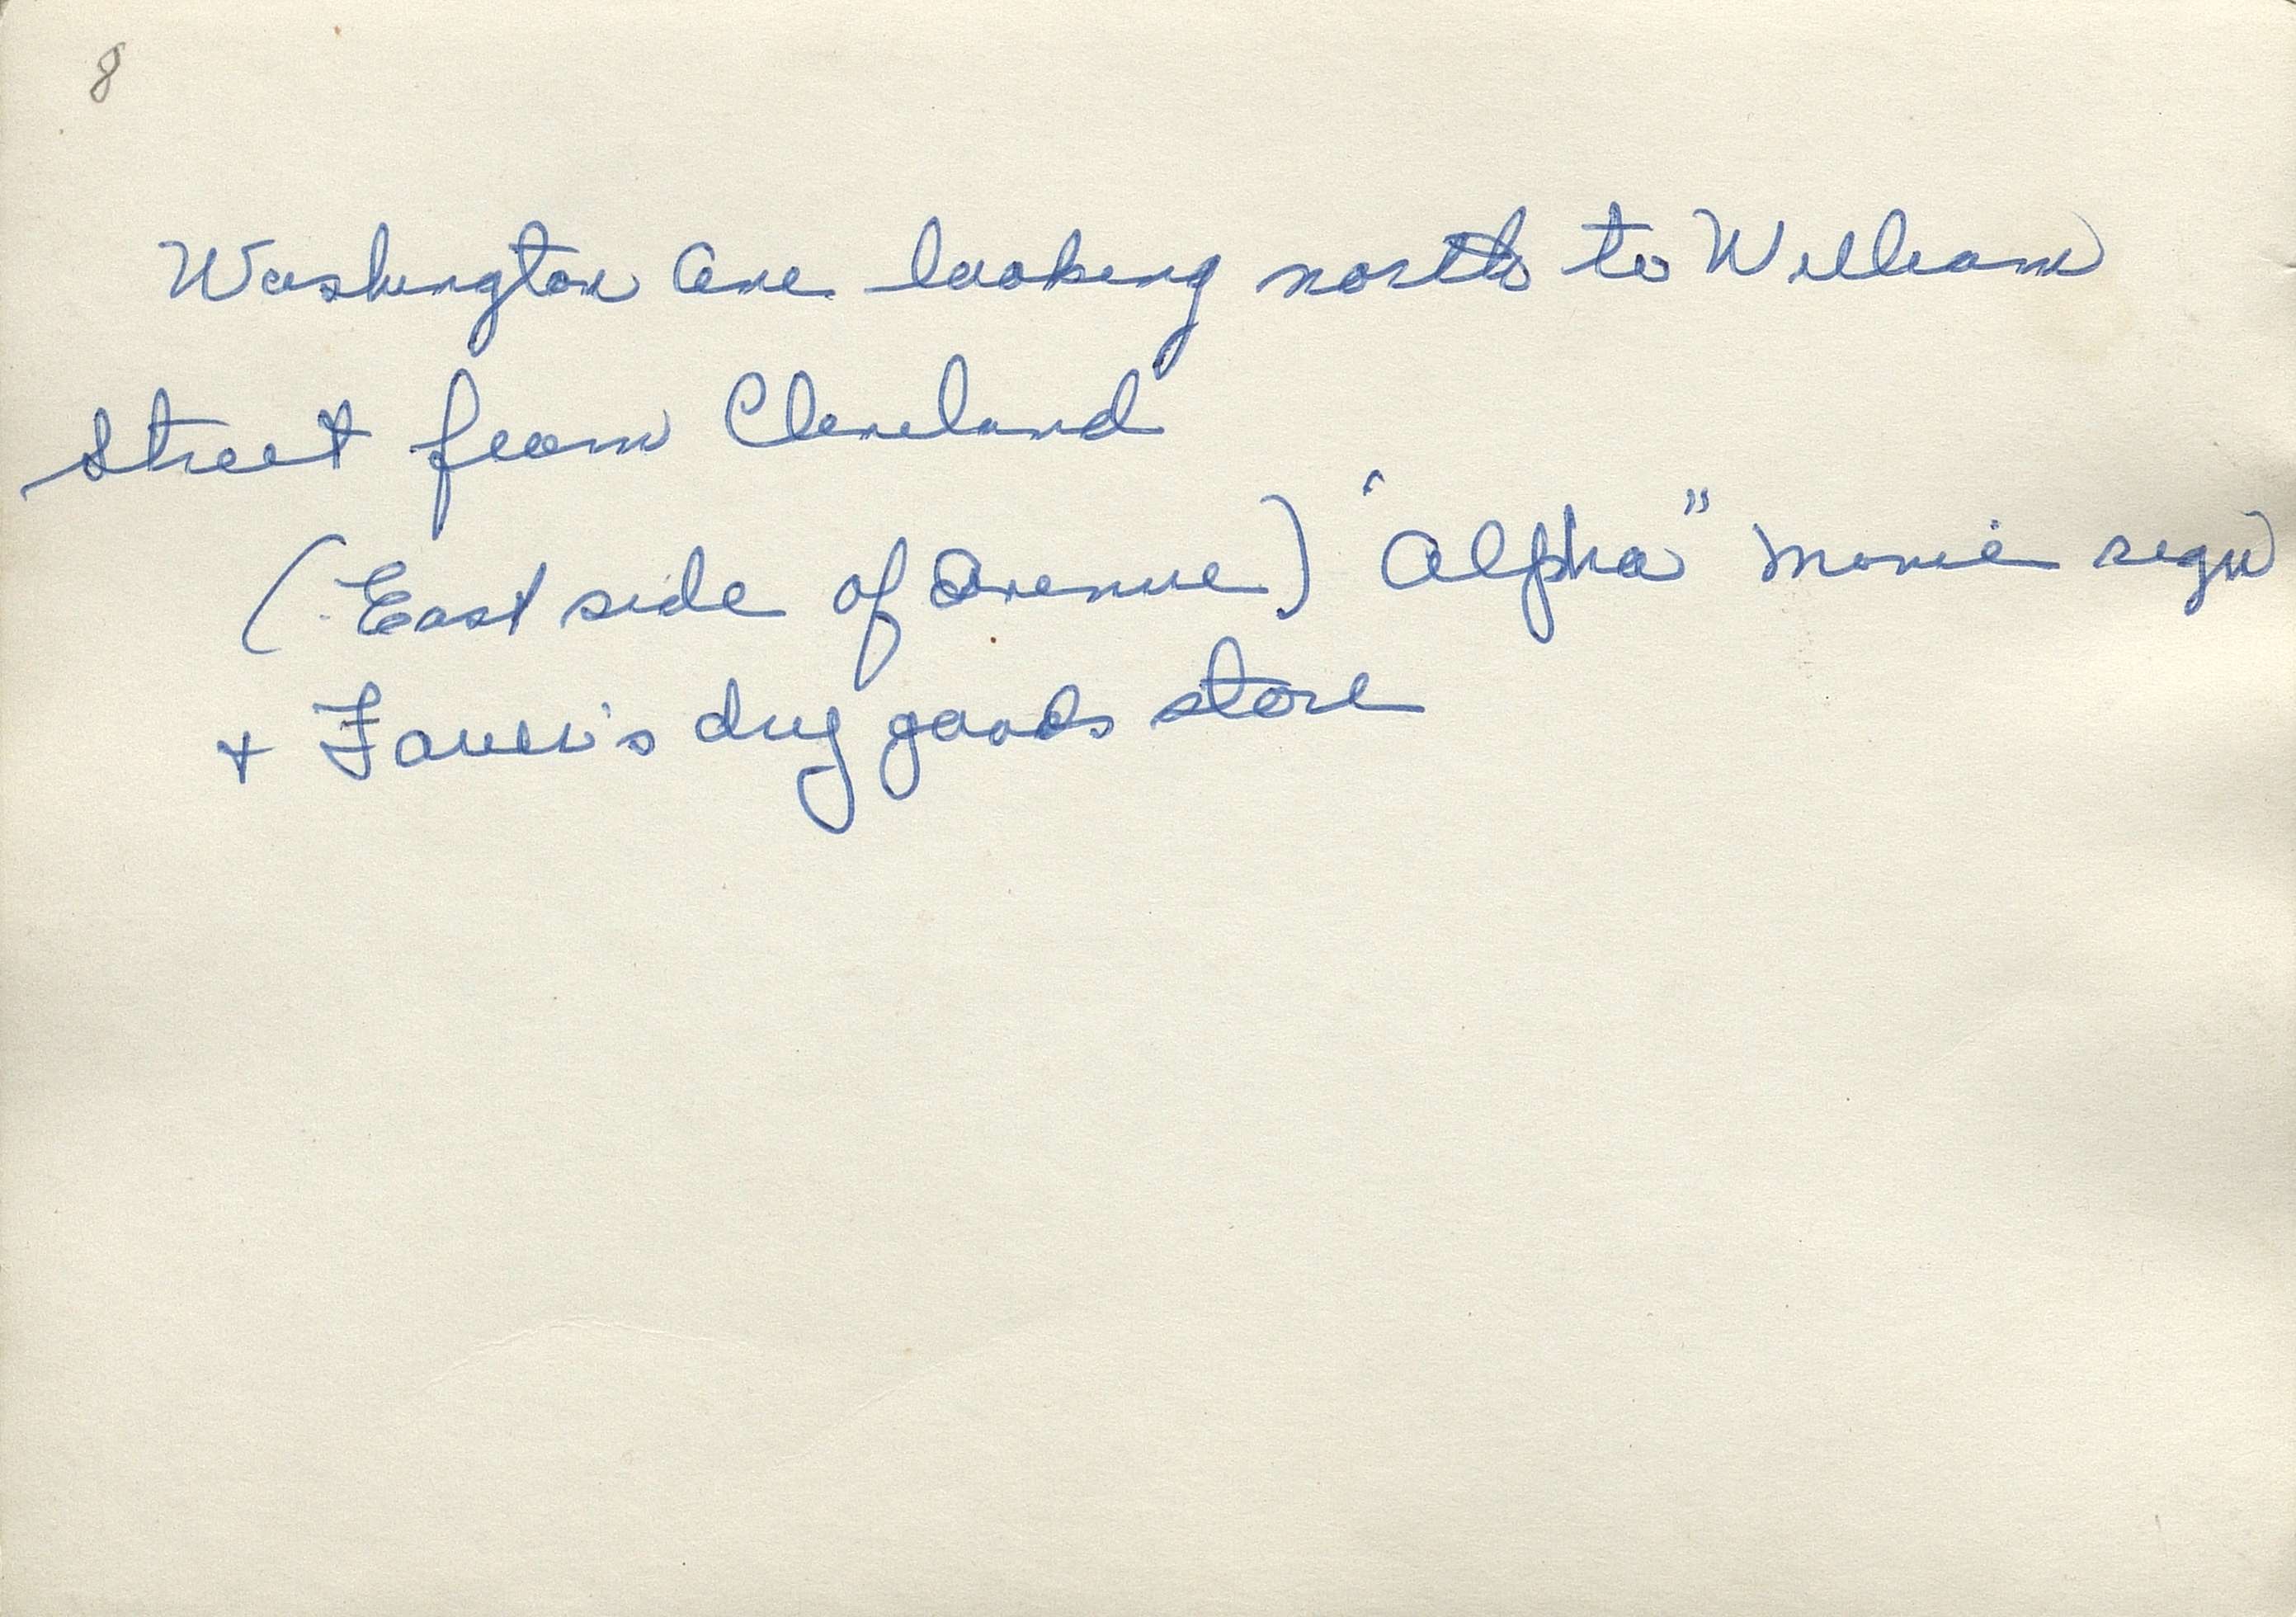 8
Washington Ave looking north to William
Street from Cleveland
(East side of Avenue) "Alpha" movie sign
+ dry goods store